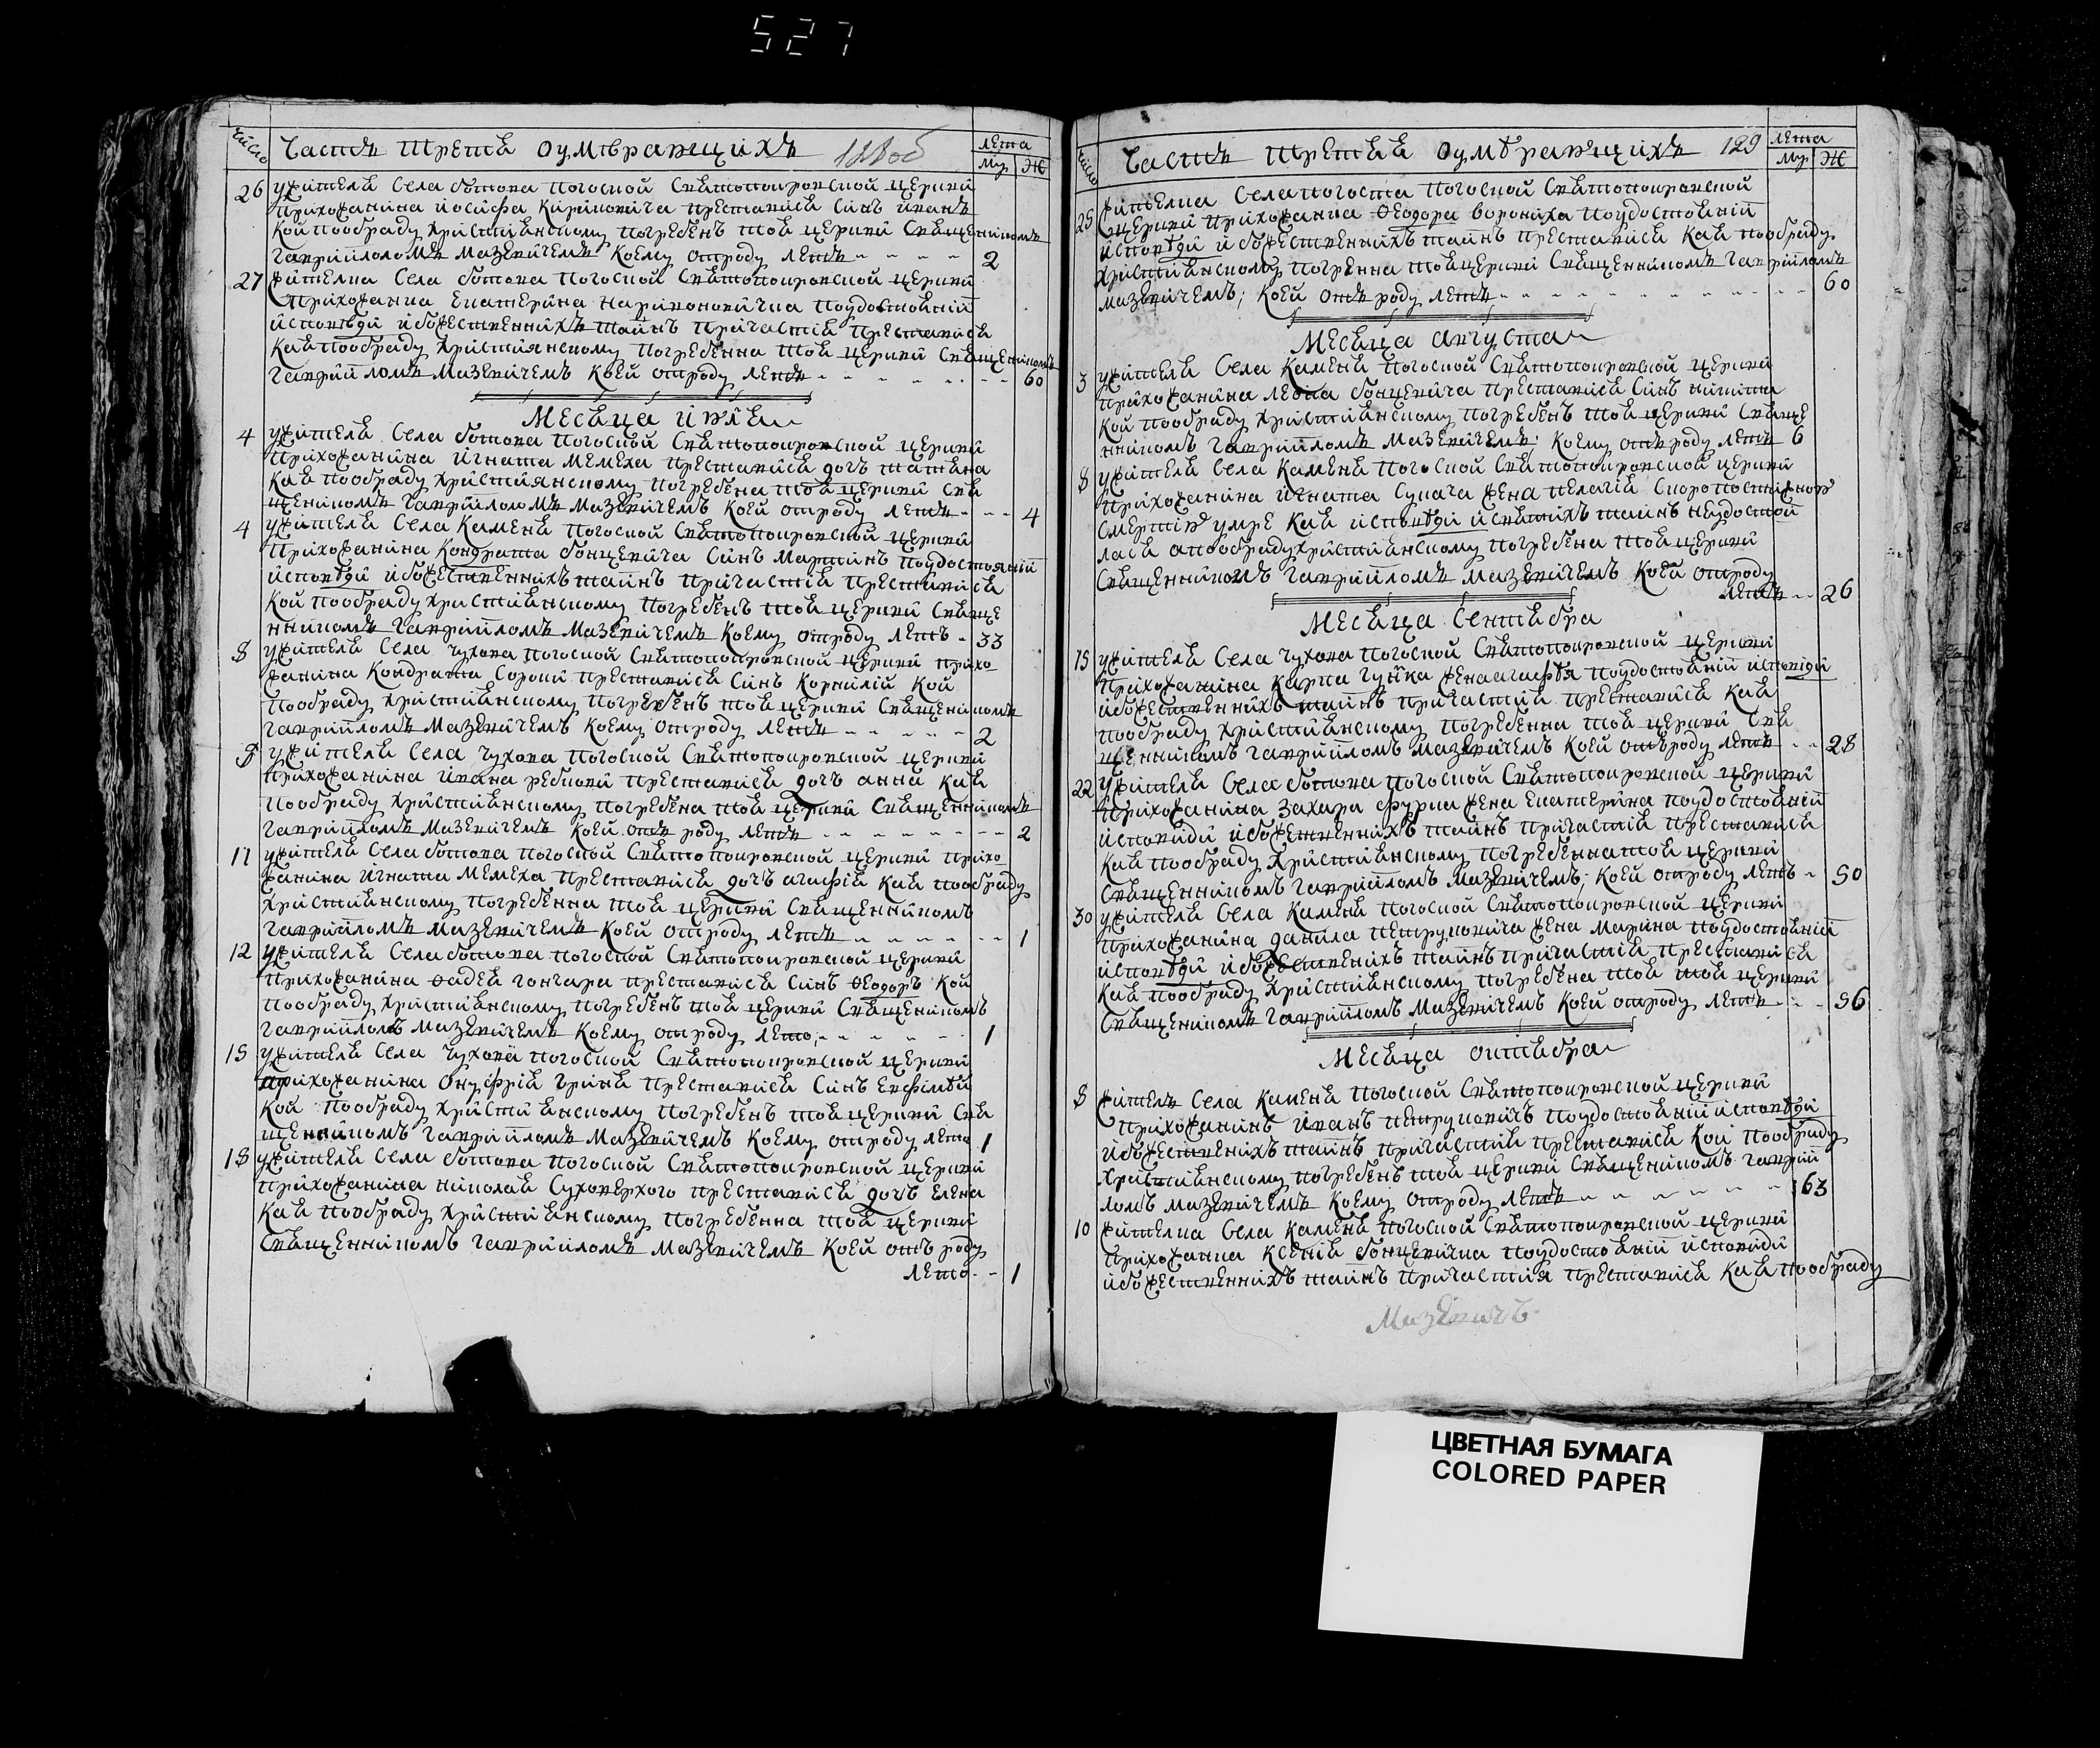 527
Число Часть третья оумѣраꙗщихъ 128об лета
Му Ж
26 Ужителя Села ботова Погоской Святопокровской церкви
Прихожанина иосифа Кириковича преставися Синъ иванъ
Кой пообряду християнскому Погребенъ тоя церкви Священикомъ
гавриилломъ мазевичемъ Коему отроду летъ 2
27 Жителка Села ботова Погоской Святопокровской церкви
Прихожанка Екатерина Поудостоянии
исповѣди ибожественнихъ таинъ Причастия Преставися
Кая пообряду християнскому Погребенна тоя церкви Священикомъ
гавриилломъ мазевичемъ Коей отроду летъ 60
Месяца июля
4 Ужителя Села ботова Погоской Святопокровской церкви
Прихожанина игната мемеха Преставися дочь татяна
Кая пообряду християнскому Погребена тоя церкви Свя
щеникомъ гавриилломъ мазевичемъ Коей отроду летъ 4
4 Ужителя Села Каменя Погоской Святопокровской церкви
Прихожанина Кондрата бонцевича Синъ мартинъ Поудостоянии
исповѣди ибожественнихъ таинъ Причастия Преставися
Кой пообряду християнскому Погребенъ тоя церкви Свяще
нникомъ гавриилломъ мазевичемъ Коему отроду летъ 33
8 Ужителя Села чухова Погоской Святопокровской церкви Прихо
жанина Кондрата Сороки Преставися Синъ Корнилий Кой
пообряду християнскому Погребенъ тоя церкви Священикомъ
гавриилломъ мазевичемъ Коему отроду летъ 2
9 Ужителя Села чухова Погоской Святопокровской церкви
Прихожанина ивана ребковй Преставися дочь анна Кая
пообряду християнскому Погребена тоя церкви Священникомъ
гавриилломъ мазевичемъ Коей отъ роду летъ 2
11 Ужителя Села ботова Погоской Святопокровской церкви Прихо
жанина игната мемеха Преставися дочь агафия Кая пообряду
християнскому Погребенна тоя церкви Священникомъ
гавриилломъ мазевичемъ Коей отроду летъ 1
12 Ужителя Села ботова Погоской Святопокровской церкви
Прихожанина фадея гончара Преставися Синъ Ѳеодоръ Кой
пообряду християнскому Погребенъ тоя церкви Священикомъ
гавриилломъ мазевичемъ Коему отроду лето 1
15 Ужителя Села чухова Погоской Святопокровской церкви
Прихожанина Онуфрия Гриня Преставися Синъ Евфимѣй
Кой пообряду християнскому Погребенъ тоя церкви Свя
щенникомъ гавриилломъ мазевичемъ Коему отроду лето 1
18 Ужителя Села ботова Погоской Святопокровской церкви
Прихожанина николая Суховерхого Преставися дочь Елена
Кая пообряду християнскому Погребенна тоя церкви
Священникомъ гавриилломъ мазевичемъ Коей отъ роду
лето 1
Число Часть третяя оумѣраꙗщихъ 129 лета
Му Ж
25 Жителка Села погоста Погоской Святопокровской
церкви Прихожанка Ѳеодора Ворониха Поудостоянии
исповѣди ибожественнихъ таинъ Преставися Кая пообряду
християнскому Погребенна тояцеркви Священникомъ гавриилломъ
мазевичемъ, Коей отъ роду летъ 60
Месяца августа
3 Ужителя Села Каменя Погоской Святопокровской церкви
Прихожанина левка бонцевича Преставися Синъ никита
Кой пообряду християнскому Погребенъ тоя церкви Свяще
нникомъ гавриилломъ мазевичемъ, Коему отъ роду летъ 6
8 Ужителя Села Каменя Погоской Святопокровской церкви
Прихожанина игната Супача жена пелагия Скоропостижноꙗ
Смертиꙗ умре Кая исповѣди исвятихъ таинъ неудостои
лася апообряду християнскому Погребена тоя церкви
Священникомъ гавриилломъ мазевичемъ Коей отроду
летъ 26
Месяца Сентября
15 Ужителя Села чухова Погоской Святопокровской церкви
Прихожанина Карпа гунка жена агафѣя Поудостоянии исповiди
ибожественнихъ таинъ причастия Преставися Кая
пообряду християнскому Погребенна тоя церкви Свя
щенникомъ гавриилломъ мазевичемъ Коей отъроду летъ 28
22 Ужителя Села ботова Погоской Святопокровской церкви
Прихожанина Захара фурка жена Екатерина поудостоянии
исповiди ибожественнихъ таинъ Причастия Преставися
Кая пообряду християнскому Погребенна тоя церкви
Священникомъ гавриилломъ мазевичемъ, Коей отроду летъ 50
30 Ужителя Села Каменя Погоской Святопокровской церкви
Прихожанина данила петруковича жена марина Поудостоянии
исповѣди ибожественихъ таинъ причастия Преставися
Кая пообряду християнскому Погребена тоя тоя церкви
Священикомъ гавриилломъ мазевичемъ Коей отроду летъ 56
Месяца октября
8 Житель Села Каменя Погоской Святопокровской церкви
Прихожанинъ иванъ петруковичъ Поудостоянии исповѣди
ибожественихъ таинъ Причастия преставися Кой пообряду
християнскому погребенъ тоя церкви Священикомъ гаврии
ломъ мазевичемъ Коему отроду летъ 63
10 Жителка Села Каменя Погоской Святопокровской церкви
Прихожанка Ксения бонцевичка Поудостоянии исповiди
ибожественнихъ таинъ Причастия преставися Кая пообряду
Мазевичъ
ЦВЕТНАЯ БУМАГА
COLORED PAPER